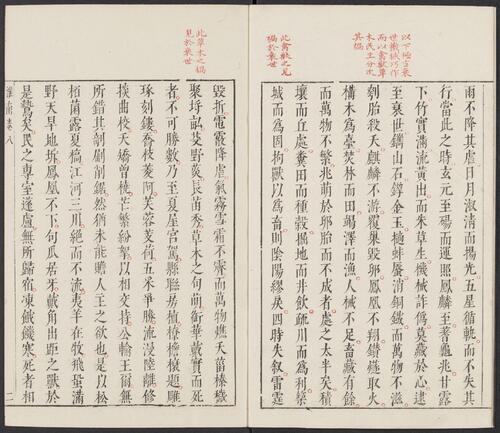 以下極言衰
世機械巧作
而以禽獸草
木民生分次
其禍
雨不降其虐日月淑清而揚光五星循軌而不失其
行當此之時玄元至碭而運照鳳麟至蓍龜兆甘露
下竹實滿流黃出而朱草生機械詐僞莫藏於心逮
至衰世鐫山石鍥金玉擿蚌蜃消銅鐵而萬物不滋
刳胎殺夭麒麟不游覆巢毀卵鳳凰不翔鑽燧取火
構木爲臺焚林而田竭澤而漁人械不足畜藏有餘
而萬物不繁兆萌於卵胎而不成者處之太半矣積
壤而丘處糞田而種穀掘地而井飲疏川而爲利築
城而爲固拘獸以爲畜則陰陽繆戾四時失敘雷霆
此禽獸之見
禍於衰世
此草木之禍
見於衰世
毀折電霰降虐氛霧雪霜不霽而萬物燋夭菑榛穢
聚埒畝芟野菼長苗秀草木之句萌銜華戴實而死
者不可勝數乃至夏屋宮駕縣聯房植橑檐榱題雕
琢刻鏤喬枝菱阿芙蓉芰荷五采爭勝流漫陸離修
掞曲挍夭矯曾橈芒繁紛挐以相交持公輸王爾無
所錯其剞劂削鋸然猶未能贍人主之欲也是以松
柏菌露夏槁江河三川絕而不流夷羊在牧飛蛩滿
野天旱地坼鳳凰不下句爪居牙戴角出距之獸於
是鷙矣民之專室蓬廬無所歸宿凍餓饑寒死者相
淮南卷八
二